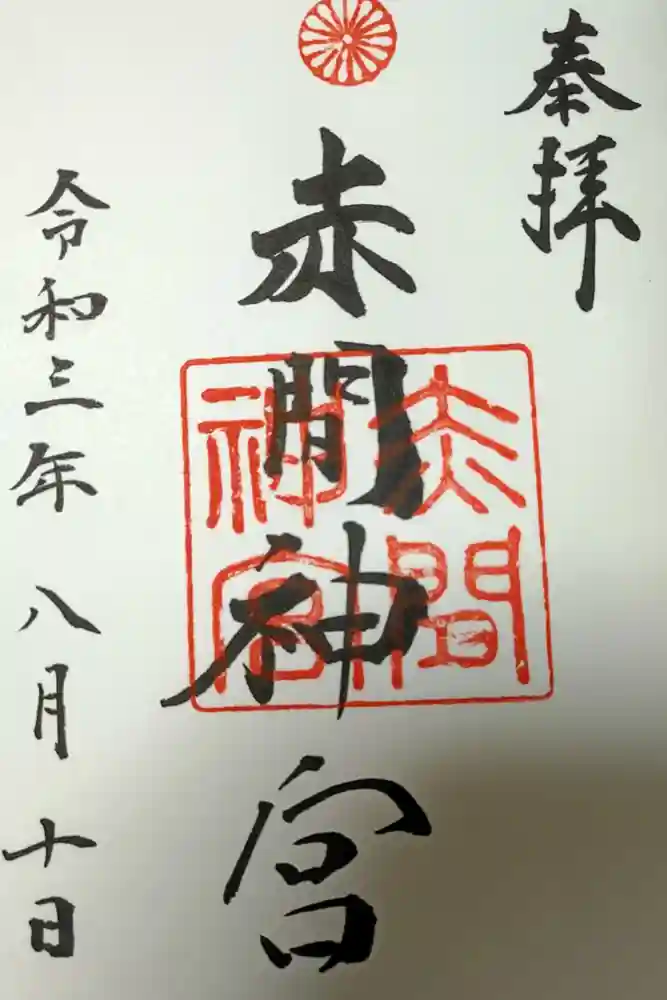 奉拝
赤間神宮
赤間神宮
令和三年 八月 十日